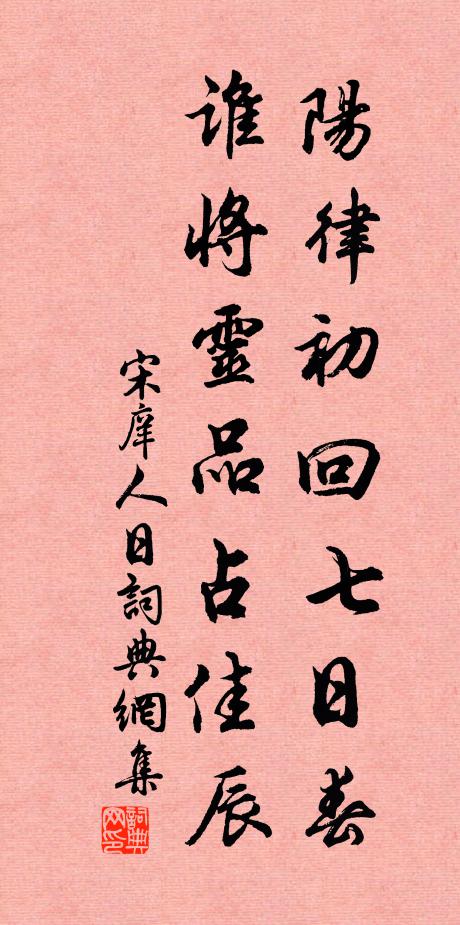 陽律初回七日春
誰將靈品占佳辰
宋庠人日詞典網集
詞典网印